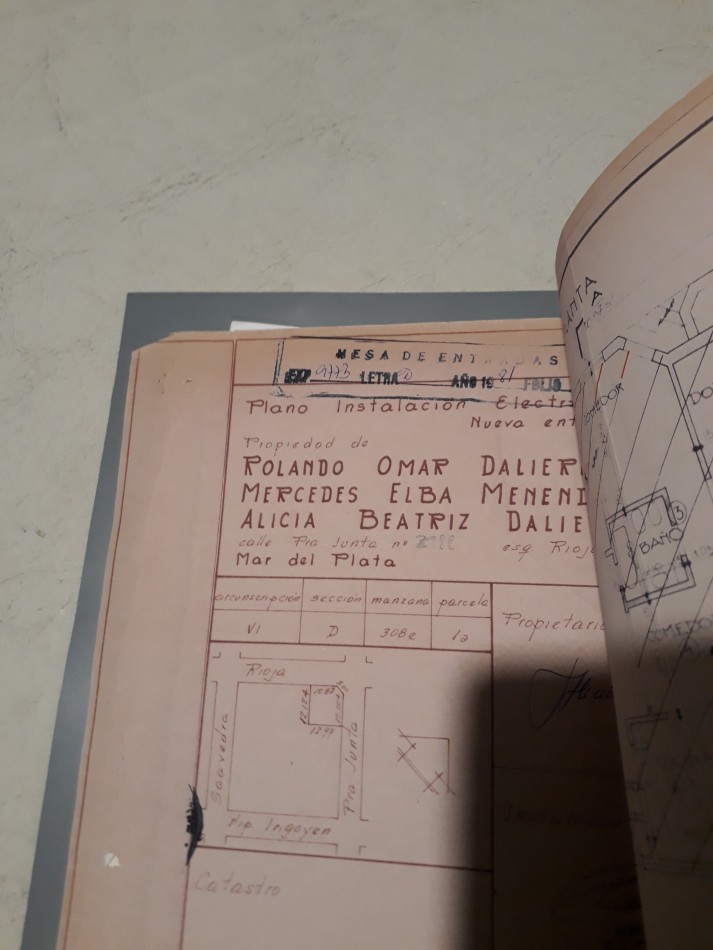 MESA DE ENTRADAS
EXP 9773 LETRA AÑO 1981 FOLIO
Plano Instalación Electr
Nueva ent
Propiedad de
ROLANDO OMAR DALIER
MERCEDES ELBA MENEND
ALICIA BEATRIZ DALIE
calle Pra Junta nº esq Rioja
Mar del Plata
circunscripción sección manzana parcela
VI D 308e 1a
Propietario
Rioja
12.124
12.99
Saavedra
Pra Junta
Hip Irigoyen
Catastro
PLANTA
COMEDOR
DO
BAÑO
3
COMEDO